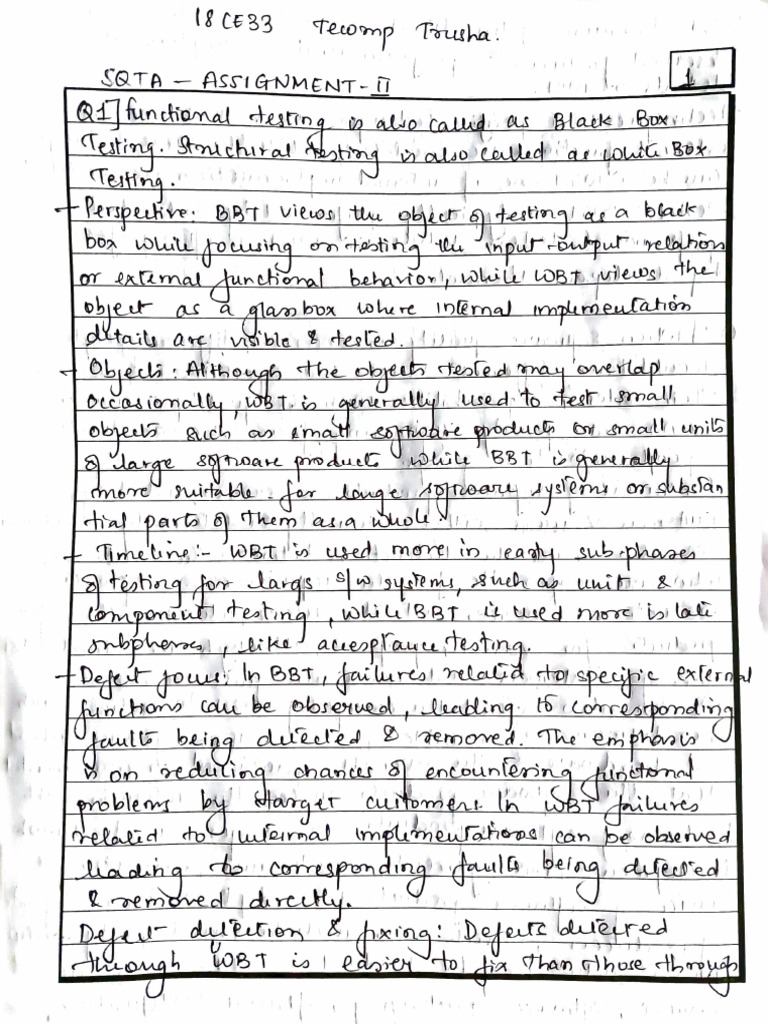 18CE33 Tecomp Trusha.
1
SQTA - ASSIGNMENT-II
Q1] functional testing is also called as Black Box
Testing. Structural testing is also called as white Box
Testing.
- Perspective: BBT views the object of testing as a black
box while focusing on testing the input-output relation
or external functional behavior, while WBT views the
object as a glassbox where internal implementation
details are visible & tested.
- Objects: Although the objects tested may overlap
occasionally, WBT is generally used to test small
objects such as small software products or small units
of large software products while BBT is generally
more suitable for large software systems or substan
tial parts of them as a whole.
- Timeline:- WBT is used more in early sub-phases
of testing for large s/w systems, such as unit &
component testing, while BBT is used more is late
subphases, like acceptance testing.
- Defect focus: In BBT, failures related to specific external
functions can be observed, leading to corresponding
faults being detected & removed. The emphasis
is on reducing chances of encountering functional
problems by target customers. In WBT failures
related to internal implementations can be observed
leading to corresponding faults being detected
& removed directly.
Defect detection & fixing: Defects detected
through WBT is easier to fix than those through